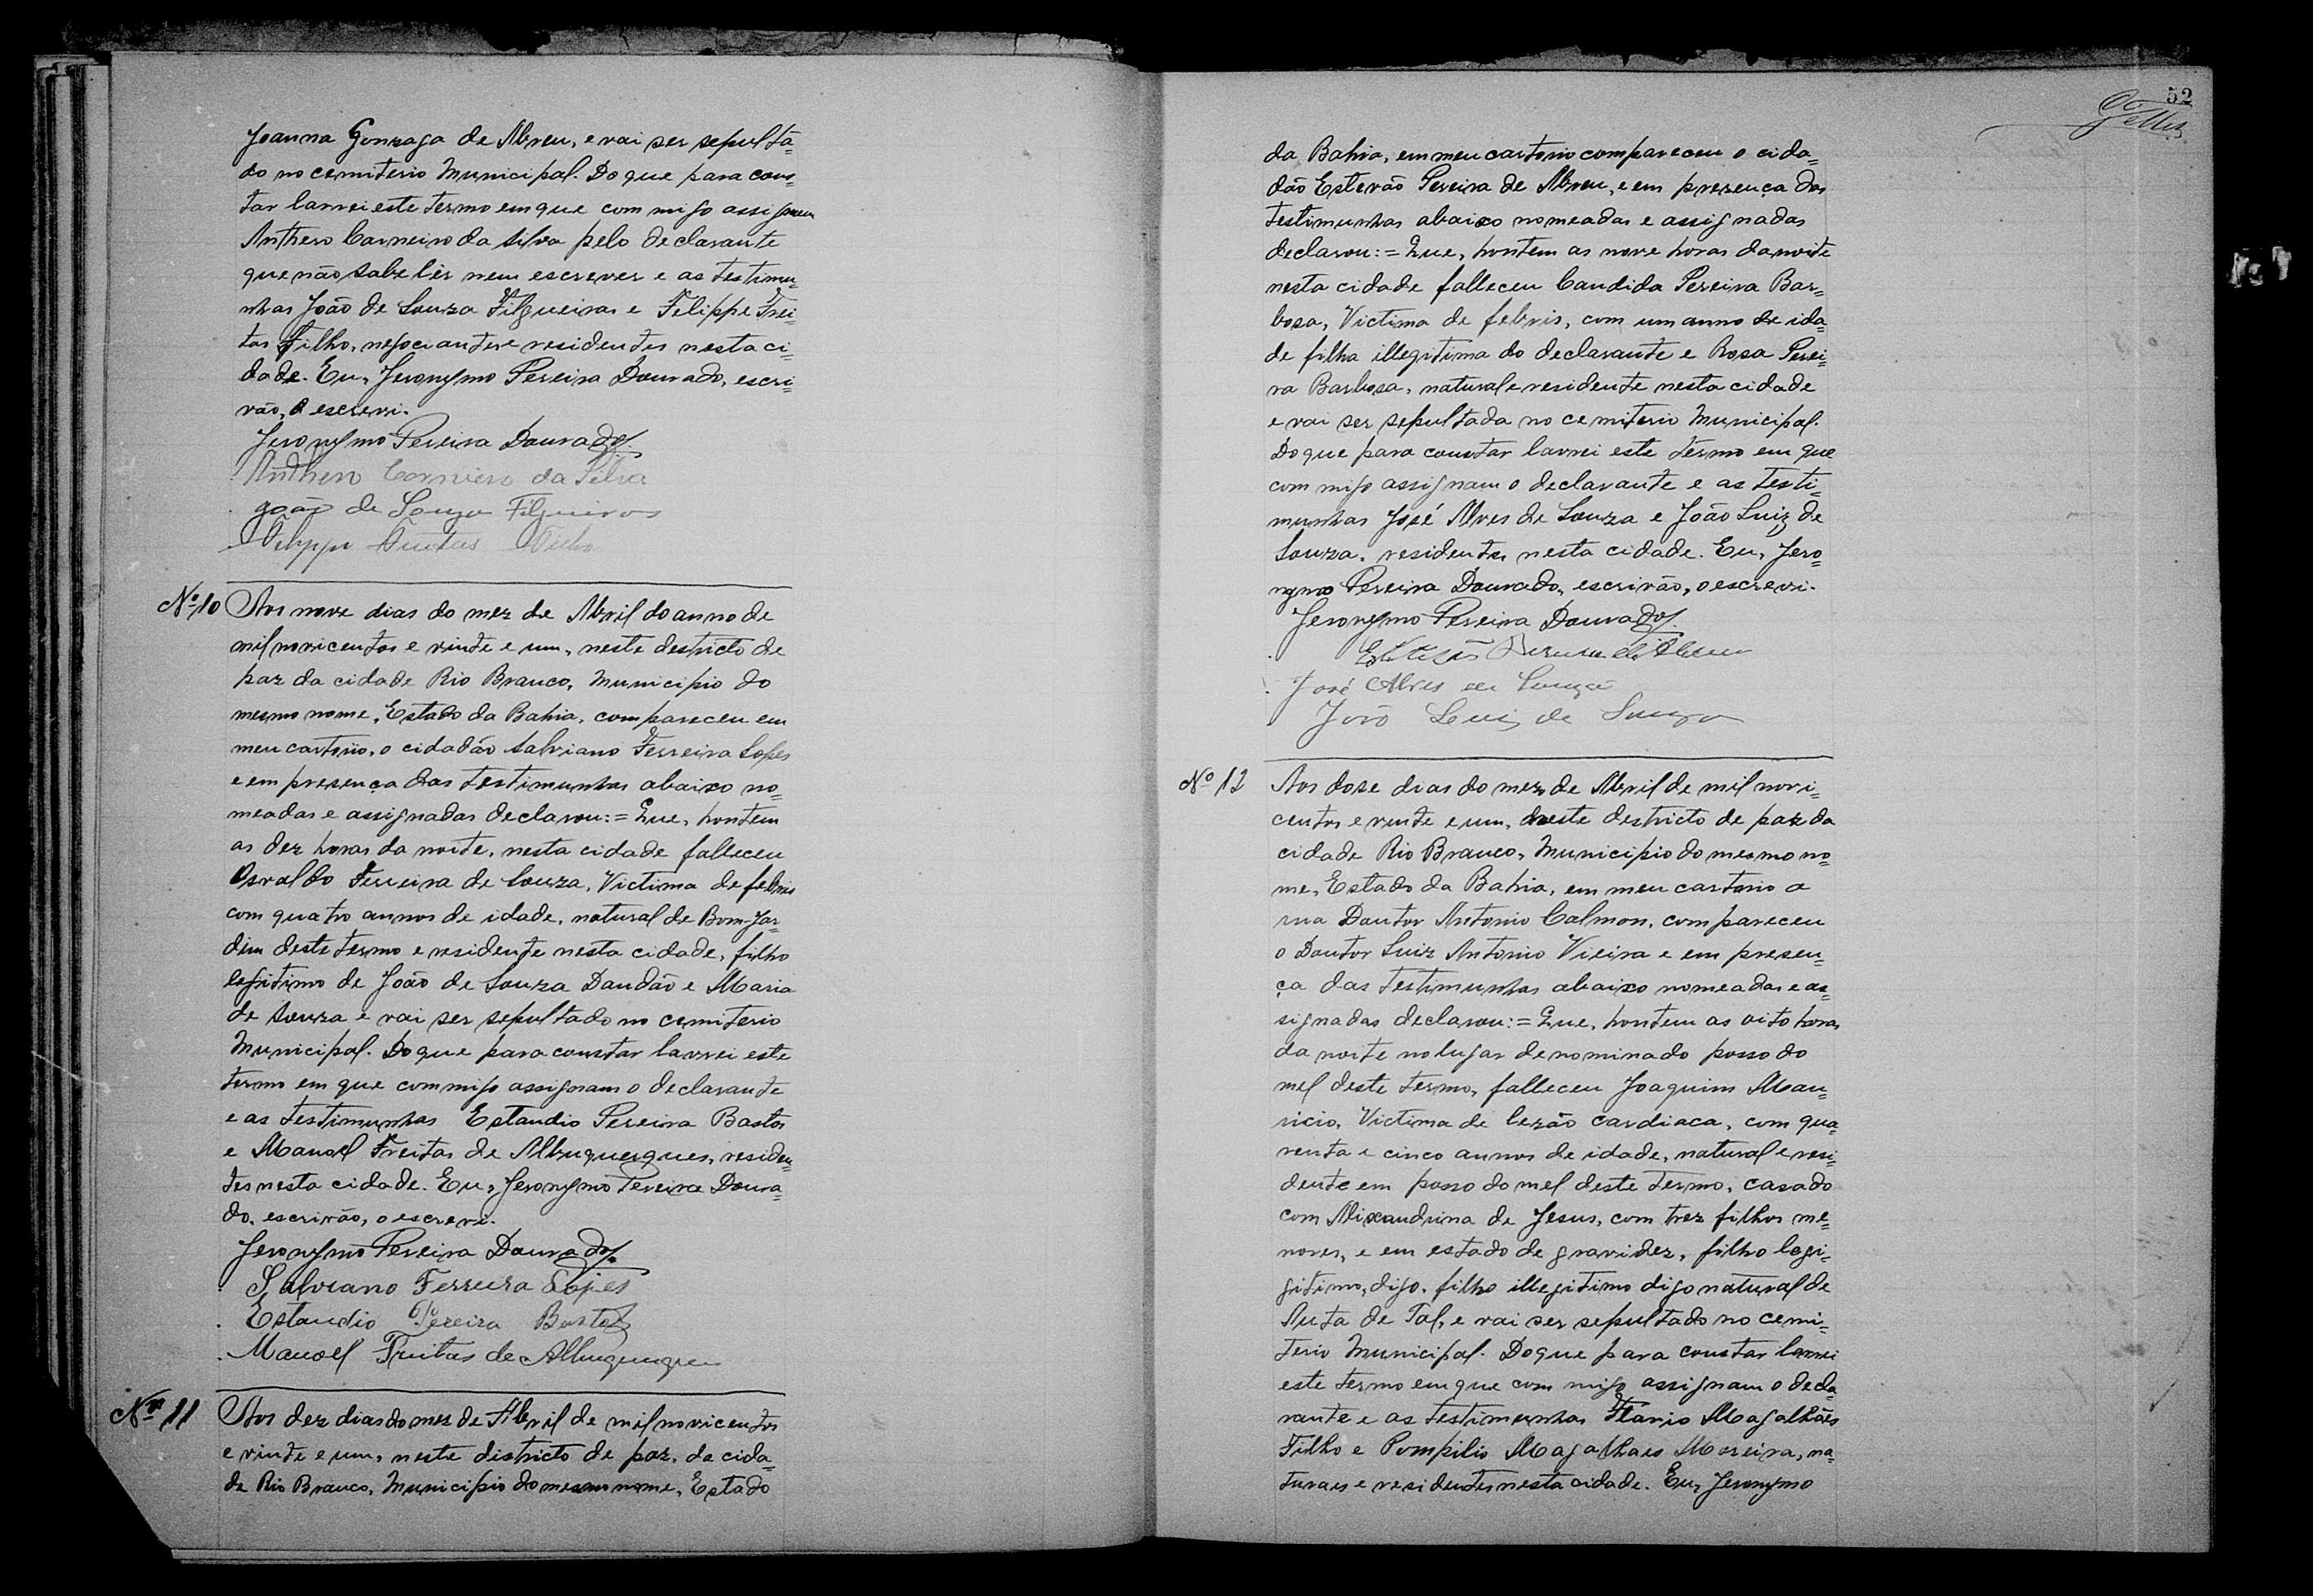 Joanna Gonzaga de Abreu, e vai ser sepulta=
do no cemiterio Municipal. Do que para cons=
tar lavrei este termo em que commigo assignam
Anthero Carneiro da Silva pelo declarante
que não sabe lêr nem escrever e as testimu=
nhas João de Souza Filgueiras e Felippe Frei=
tas Filho, negociantes e residentes nesta ci=
dade. Eu, Jeronymo Pereira Dourado, escri=
vão, o escrevi.
Jeronymo Pereira Dourado
Anthero Carneiro da Silva
João de Souza Filgueiras
Felippe Freitas Filho
Nº 10 Aos nove dias do mez de Abril do anno de
mil novicentos e vinte e um, neste destricto de
paz da cidade Rio Branco, Municipio do
mesmo nome, Estado da Bahia, compareceu em
meu cartorio, o cidadão Salviano Ferreira Lopes
e em presença das testimunhas abaixo no=
meadas e assignadas declarou:= Que, hontem
as dez horas da noite, nesta cidade falleceu
Osvaldo Ferreira de Souza, Victima de febris
com quatro annos de idade, natural de Bom-Jar=
dim deste termo e residente nesta cidade, filho
legitimo de João de Souza Dandão e Maria
de Souza e vai ser sepultado no cemiterio
Municipal. Do que para constar lavrei este
termo em que commigo assignam o declarante
e as testimunhas Estandio Pereira Bastos
e Manoel Freitas de Albuquerques, residen=
tes nesta cidade. Eu, Jeronymo Pereira Doura=
do, escrivão, o escrevi.
Jeronymo Pereira Dourado
Salviano Ferreira Lopes
Estandio Pereira Bastos
Manoel Freitas de Albuquerque
Nº 11 Aos dez dias do mez de Abril de mil novicentos
e vinte e um, neste districto de paz, da cida=
de Rio Branco, Municipio do mesmo nome, Estado
52
da Bahia, em meu cartorio compareceu o cida=
dão Estevão Pereira de Abreu, e em presença das
testimunhas abaixo nomeadas e assignadas
declarou:= Que, hontem as nove horas da noite
nesta cidade falleceu Candida Pereira Bar=
bosa, Victima de febris, com um anno de ida=
de filha illegitima do declarante e Rosa Perei=
ra Barbosa, natural e residente nesta cidade
e vai ser sepultada no cemiterio Municipal.
Do que para constar lavrei este termo em que
commigo assignam o declarante e as testi=
munhas José Alves de Souza e João Luiz de
Souza, residentes nesta cidade. Eu, Jero=
nymo Pereira Dourado, escrivão, o escrevi.
Jeronymo Pereira Dourado
Estevão Pereira de Abreu
José Alves de Souza
João Luiz de Souza
Nº 12 Aos dose dias do mez de Abril de mil novi=
centos e vinte e um, neste destricto de paz da
cidade Rio Branco, Municipio do mesmo no=
me, Estado da Bahia, em meu cartorio a
rua Doutor Antonio Calmon, compareceu
o Doutor Luiz Antonio Vieira e em presen=
ça das testimunhas abaixo nomeadas e as=
signadas declarou:= Que, hontem as oito horas
da noite no lugar denominado posso do
mel deste termo, falleceu Joaquim Mau=
ricio, Victima de lezão cardiaca, com qua=
renta e cinco annos de idade, natural e resi=
dente em posso do mel deste termo, casado
com Alixandrina de Jesus, com trez filhos me=
nores, e em estado de gravidez, filho legi=
gitimo, digo, filho illegitimo digo natural de
Auta de Tal, e vai ser sepultado no cemi=
terio Municipal. Do que para constar lavrei
este termo em que commigo assignam o decla=
rante e as testimunhas Flavio Magalhães
Filho e Pompilio Magalhaes Moreira, na=
turaes e residentes nesta cidade. Eu, Jeronymo